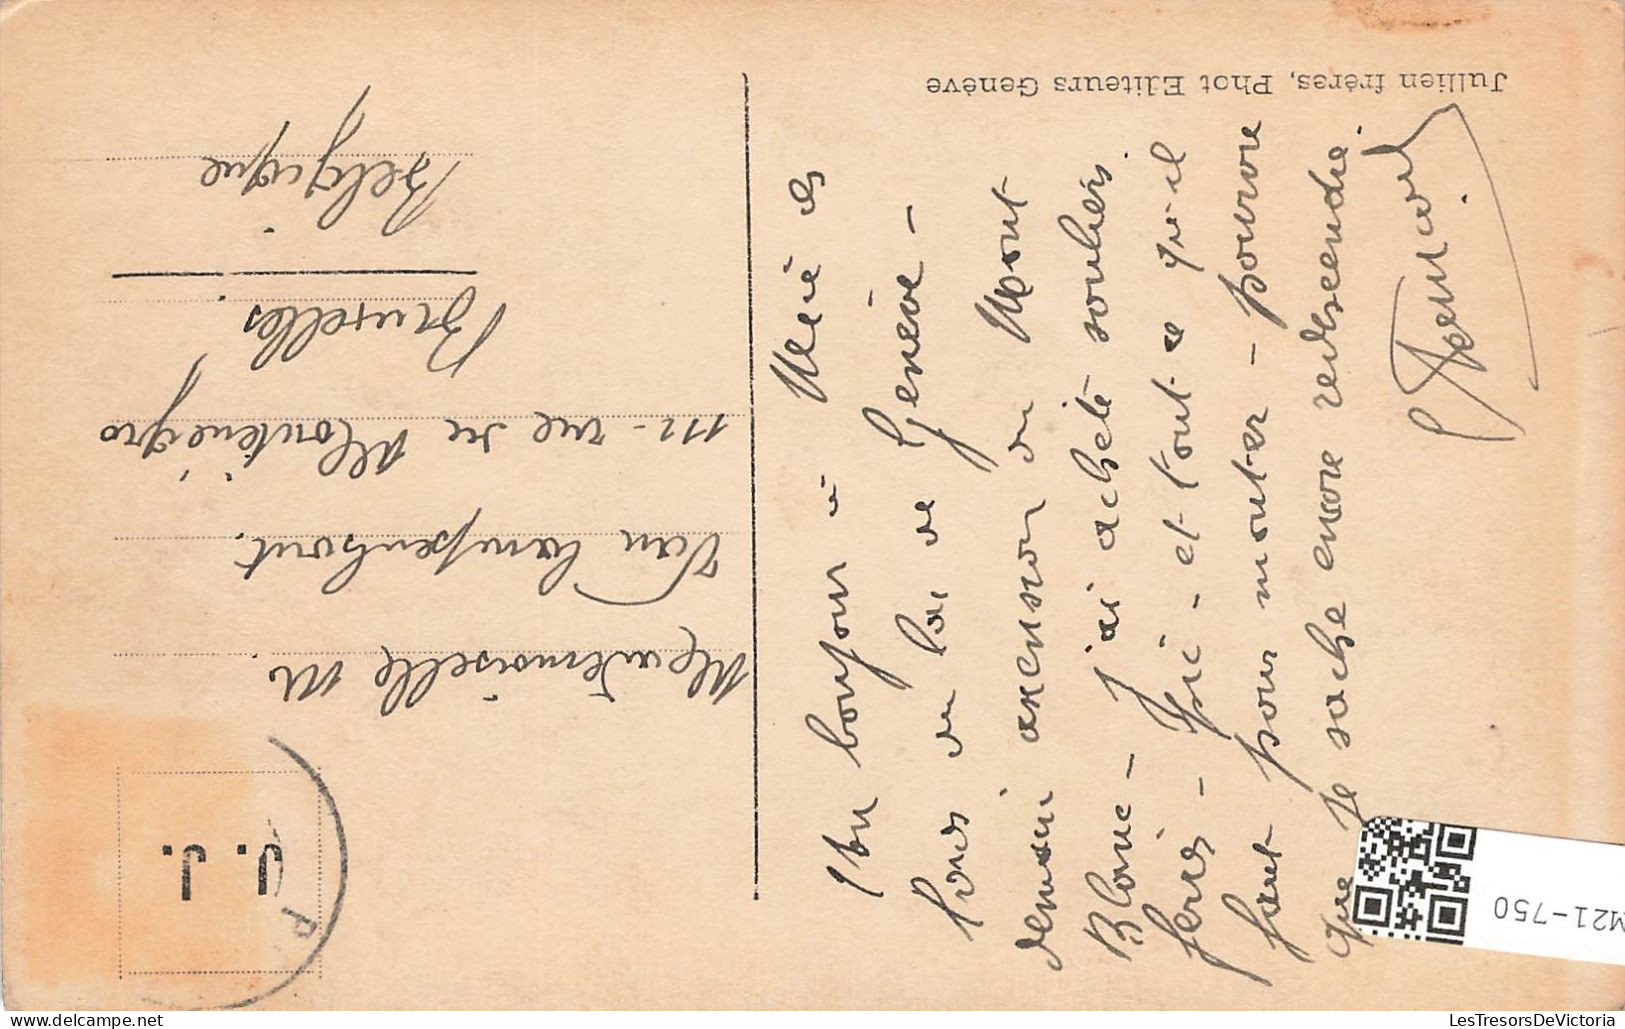 Jullien frères, Phot Editeurs Genève
Un bonjour à Mlle et
bords du lac de Genève -
demain ascension du Mont
Blanc - j'ai acheté souliers
ferrés - pic - et tout ce qu'il
faut pour monter - pourvu
que je sache encore redescendre.
Mademoiselle M.
Van Campenhout.
112 - rue du Monténégro
Bruxelles
Belgique
J. J.
P
M21-750
LesTresorsDeVictoria